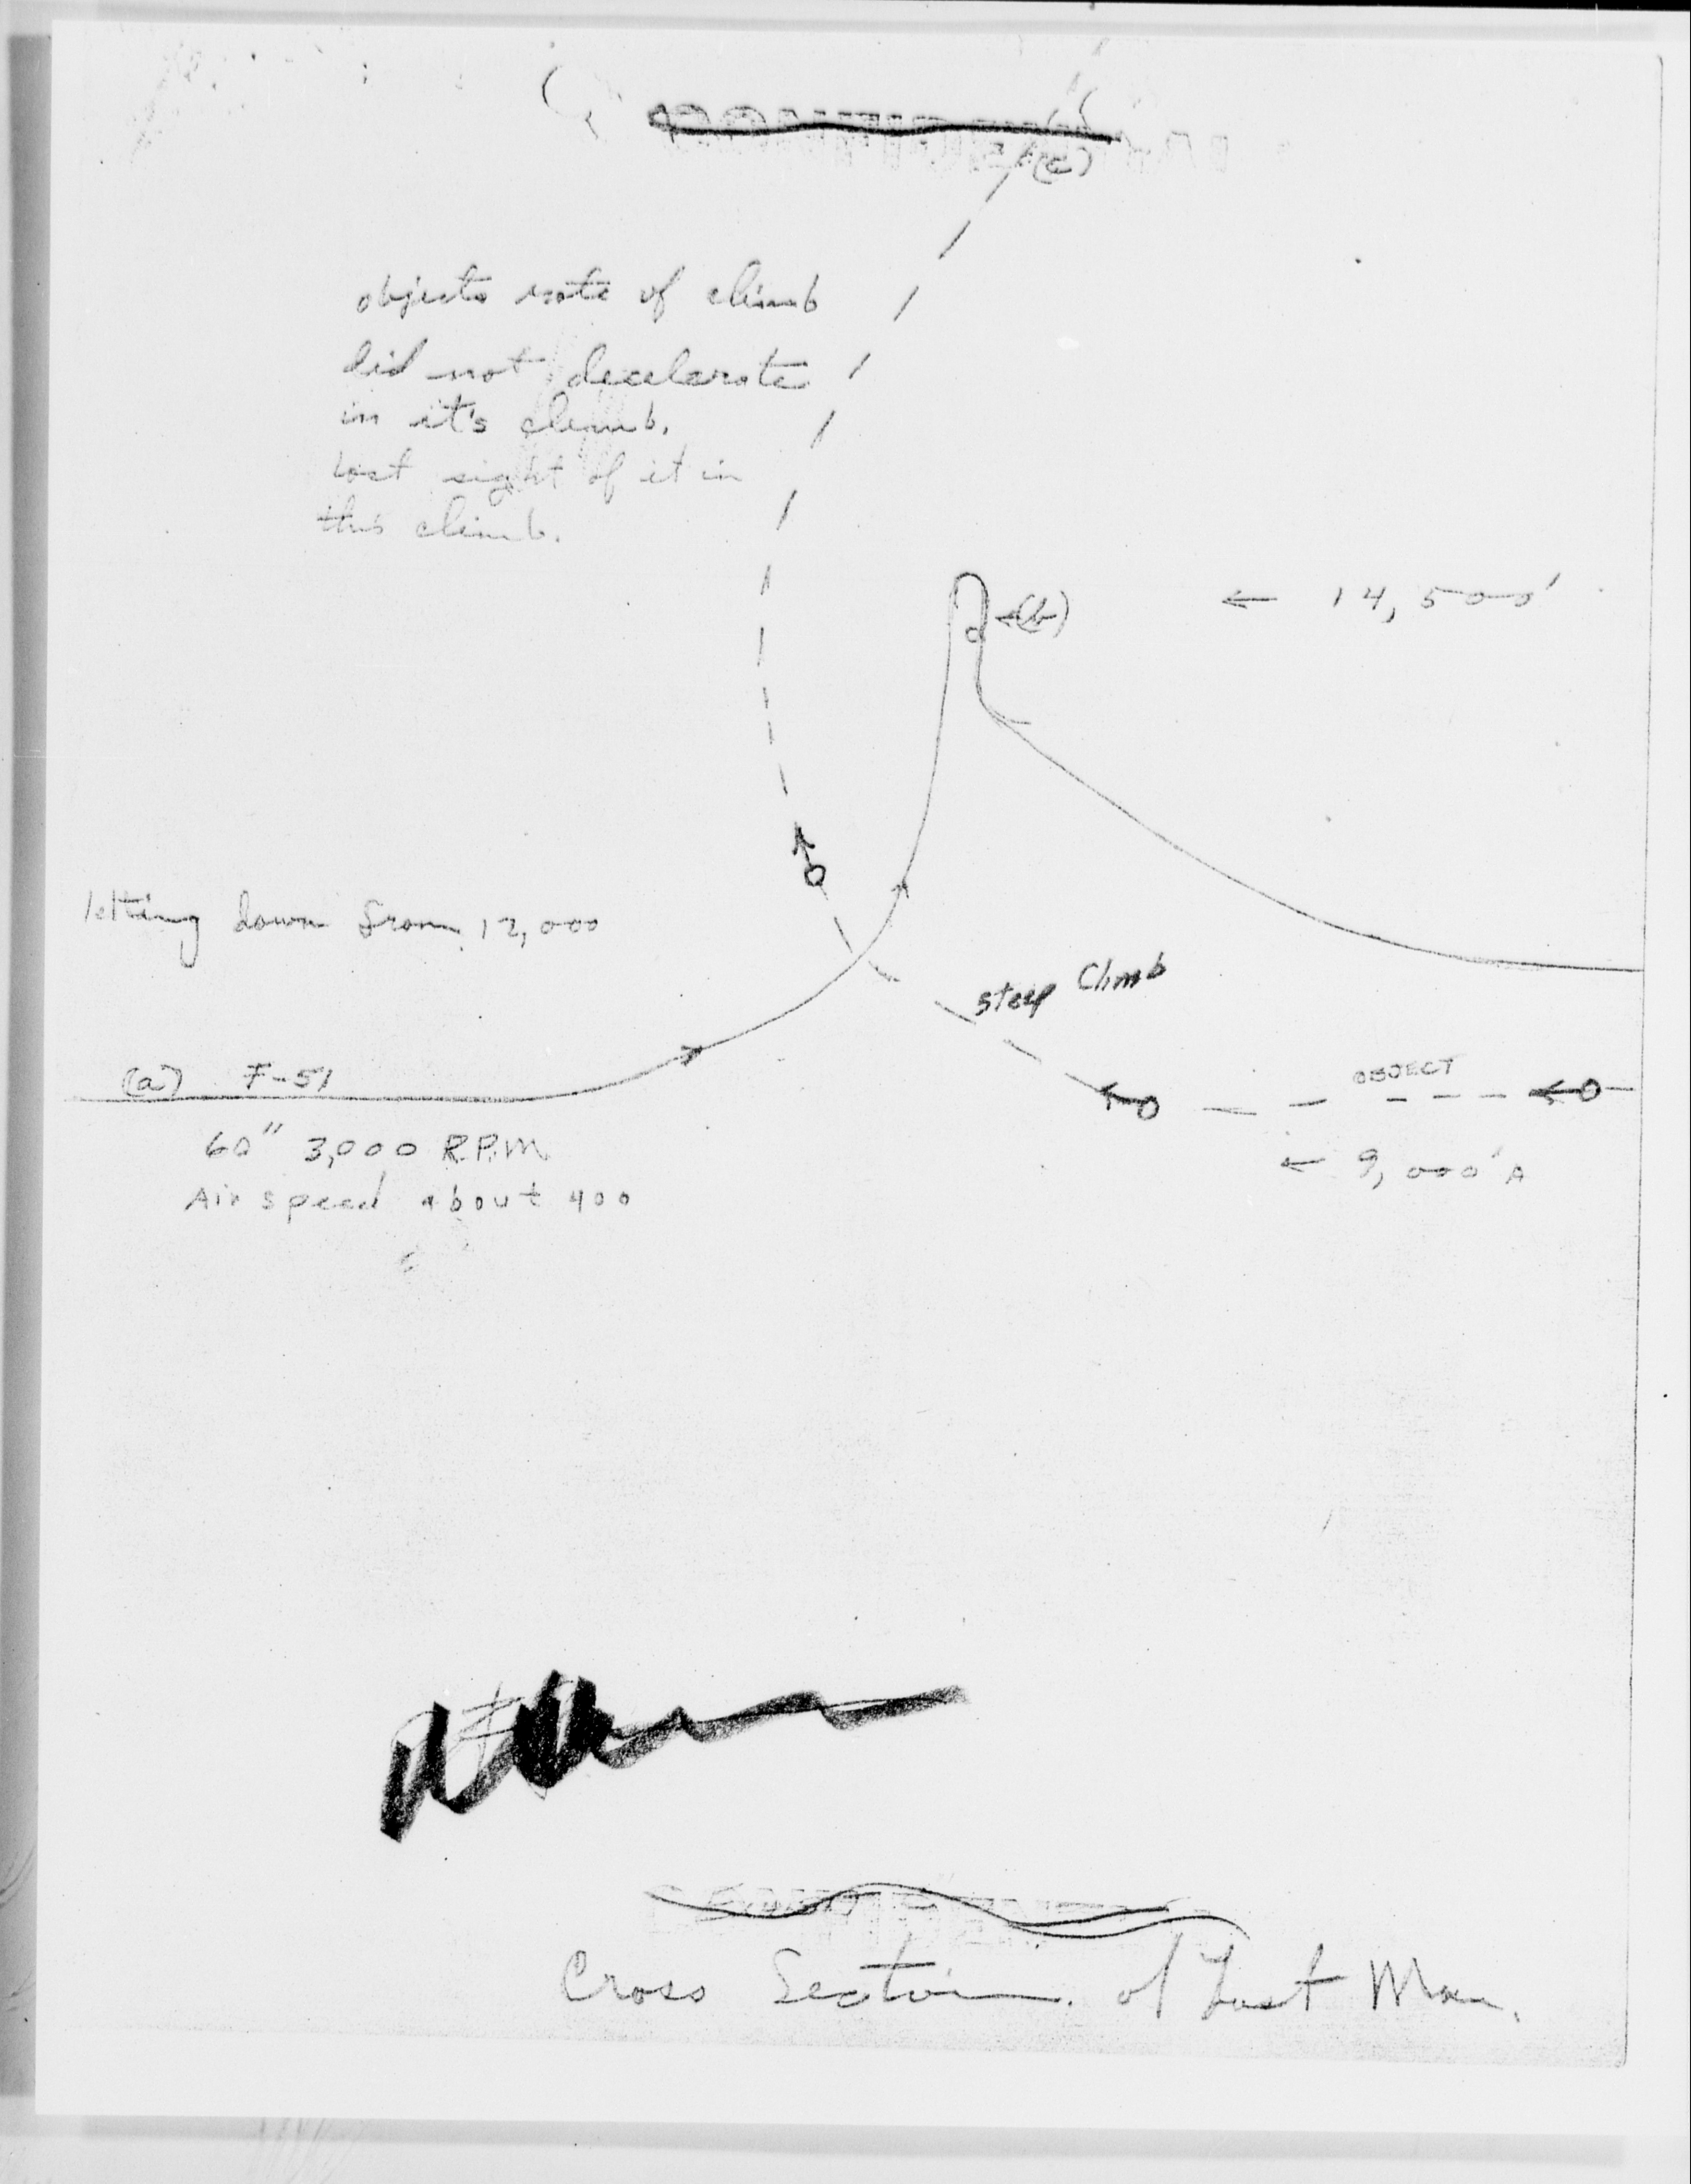 (c)
objects rate of climb
did not decelerate
in it's climb.
Lost sight of it in
this climb.
←(b)
← 14,500'
letting down from 12,000
steep Climb
(a) F-51
OBJECT
60" 3,000 R.P.M.
← 9,000'A
Air speed about 400
Cross Section of Last Man.